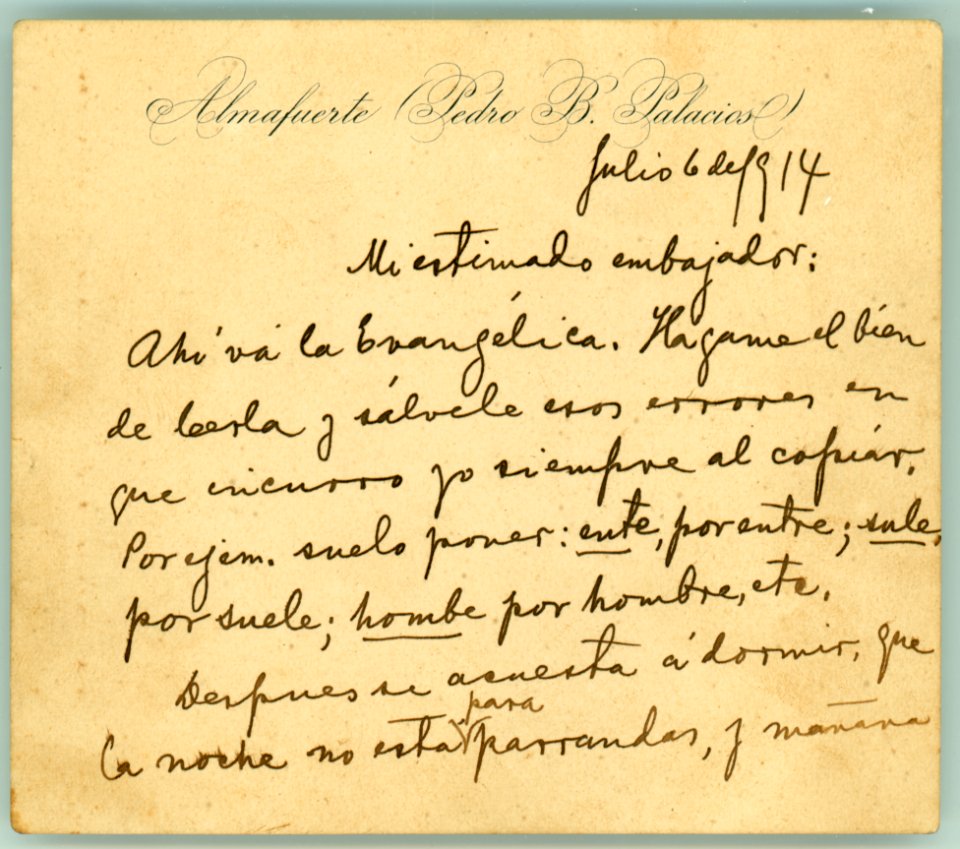 Almafuerte (Pedro B. Palacios)
Julio 6 de 1914
Mi estimado embajador:
Ahí vá la Evangélica. Hagame el bien
de leerla y sálvele esos errores en
que incurro yo siempre al copiár.
Por ejem. suelo poner: ente, por entre; sule,
por suele; hombe por hombre, etc.
Despues se acuesta á dormir, que
la noche no está para parrandas, y mañana